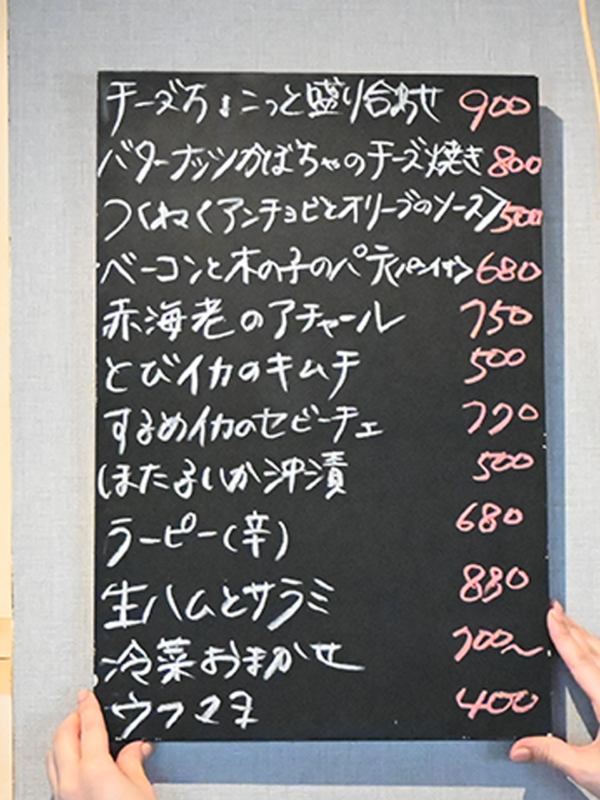 チーズちょこっと盛り合わせ 900
バターナッツかぼちゃのチーズ焼き 800
つくねくアンチョビとオリーブのソース〉500
ベーコンと木の子のパテ(パンイサン) 680
赤海老のアチャール 750
とびイカのキムチ 500
するめイカのセビーチェ 770
ほたるいか沖漬 500
ラーピー(辛) 680
生ハムとサラミ 880
冷菜おまかせ 700〜
ウフマヨ 400